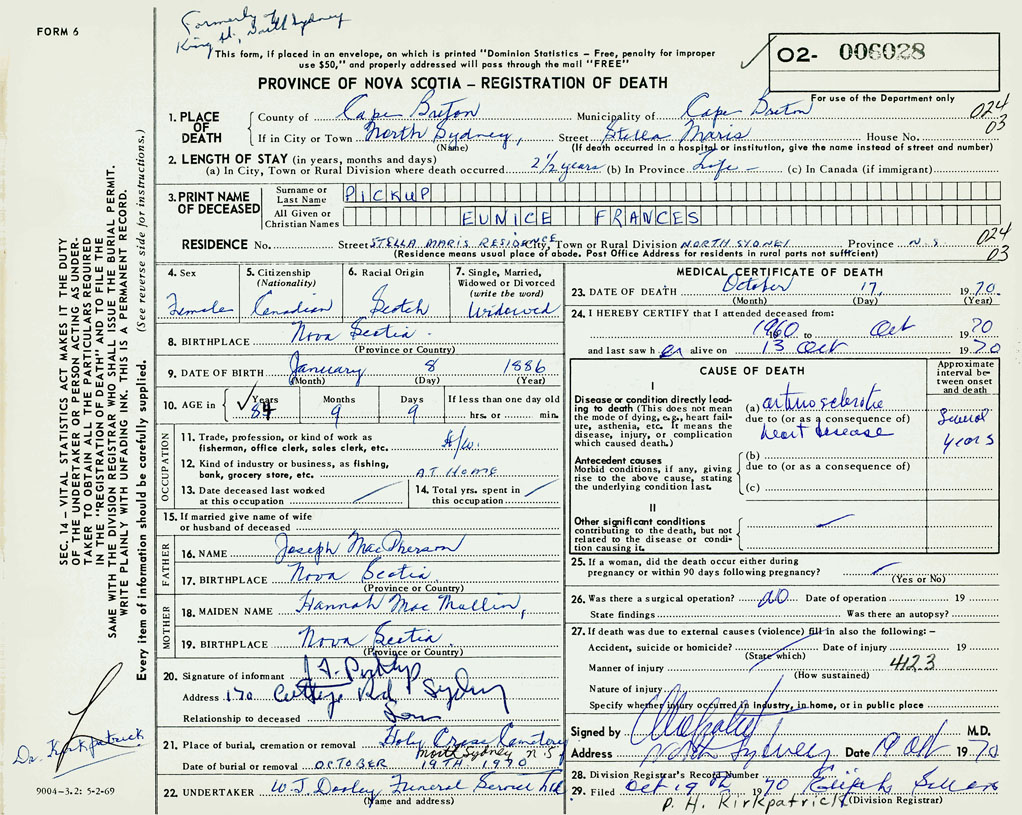 FORM 6
Formerly of
King St, South Sydney
This form, if placed in an envelope, on which is printed "Dominion Statistics – Free, penalty for improper
use $50," and properly addressed will pass through the mail "FREE"
O2- 006028
For use of the Department only
PROVINCE OF NOVA SCOTIA – REGISTRATION OF DEATH
024
03
1. PLACE OF DEATH
County of Cape Breton Municipality of Cape Breton
If in City or Town North Sydney, Street Stella Maris House No.
(Name) (If death occurred in a hospital or institution, give the name instead of street and number)
2. LENGTH OF STAY (in years, months and days)
(a) In City, Town or Rural Division where death occurred 2 1/2 years (b) In Province Life – (c) In Canada (if immigrant)
3. PRINT NAME OF DECEASED
Surname or Last Name PICKUP
All Given or Christian Names EUNICE FRANCES
RESIDENCE No. Street STELLA MARIS RESIDENCE City, Town or Rural Division NORTH SYDNEY Province N.S.
(Residence means usual place of abode. Post Office Address for residents in rural parts not sufficient)
024
03
4. Sex Female
5. Citizenship (Nationality) Canadian
6. Racial Origin Scotch
7. Single, Married, Widowed or Divorced (write the word) Widowed
8. BIRTHPLACE Nova Scotia.
(Province or Country)
9. DATE OF BIRTH January 8 1886
(Month) (Day) (Year)
10. AGE in Years 84 Months 9 Days 9 If less than one day old hrs. or min.
OCCUPATION
11. Trade, profession, or kind of work as fisherman, office clerk, sales clerk, etc. H/w.
12. Kind of industry or business, as fishing, bank, grocery store, etc. AT HOME
13. Date deceased last worked at this occupation
14. Total yrs. spent in this occupation
15. If married give name of wife or husband of deceased
FATHER
16. NAME Joseph MacPherson
17. BIRTHPLACE Nova Scotia
(Province or Country)
MOTHER
18. MAIDEN NAME Hannah MacMullin,
19. BIRTHPLACE Nova Scotia.
(Province or Country)
20. Signature of informant
Address 170 Cottage Rd Sydney
Relationship to deceased Son
21. Place of burial, cremation or removal Holy Cross Cemetery
North Sydney N.S.
Date of burial or removal OCTOBER 19TH 1970
22. UNDERTAKER W.J. Dooley Funeral Service Ltd
(Name and address)
MEDICAL CERTIFICATE OF DEATH
23. DATE OF DEATH October 17, 1970.
(Month) (Day) (Year)
24. I HEREBY CERTIFY that I attended deceased from:
1960 to Oct 1970
and last saw her alive on 13 Oct 1970
CAUSE OF DEATH
Approximate interval between onset and death
I
Disease or condition directly leading to death (This does not mean the mode of dying, e.g., heart failure, asthenia, etc. It means the disease, injury, or complication which caused death.)
(a) arteriosclerotic
due to (or as a consequence of)
heart disease
Several years
Antecedent causes
Morbid conditions, if any, giving rise to the above cause, stating the underlying condition last.
(b)
due to (or as a consequence of)
(c)
II
Other significant conditions contributing to the death, but not related to the disease or condition causing it.
25. If a woman, did the death occur either during pregnancy or within 90 days following pregnancy?
(Yes or No)
26. Was there a surgical operation? NO Date of operation 19
State findings Was there an autopsy?
27. If death was due to external causes (violence) fill in also the following: –
Accident, suicide or homicide? Date of injury 19
(State which)
Manner of injury 4123
(How sustained)
Nature of injury
Specify whether injury occurred in industry, in home, or in public place
Signed by M.D.
Address North Sydney Date 19 Oct 1970
28. Division Registrar's Record Number
29. Filed Oct 19th 1970 Elijah
P. H. Kirkpatrick (Division Registrar)
SEC. 14 – VITAL STATISTICS ACT MAKES IT THE DUTY
OF THE UNDERTAKER OR PERSON ACTING AS UNDER-
TAKER TO OBTAIN ALL THE PARTICULARS REQUIRED
IN THE "REGISTRATION OF DEATH" AND TO FILE THE
SAME WITH THE DIVISION REGISTRAR WHO SHALL ISSUE THE BURIAL PERMIT.
WRITE PLAINLY WITH UNFADING INK. THIS IS A PERMANENT RECORD.
Every item of information should be carefully supplied. (See reverse side for instructions.)
Dr. Kirkpatrick
9004-3.2: 5-2-69